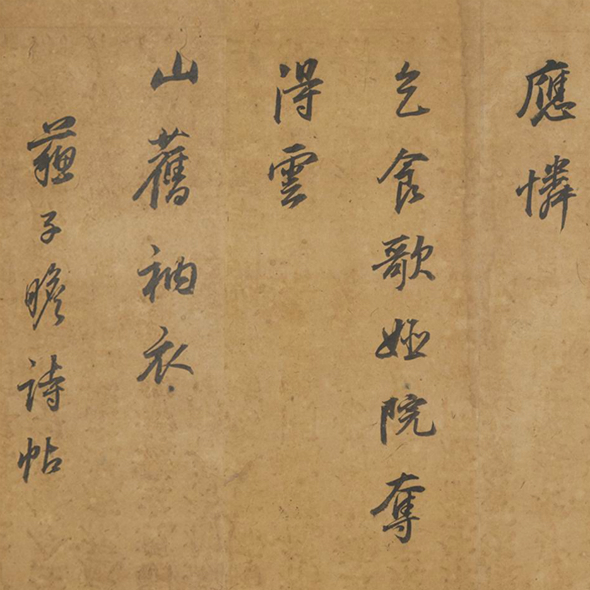 應憐
乞食歌姬院奪
得雲
山舊衲衣
蘓子瞻詩帖